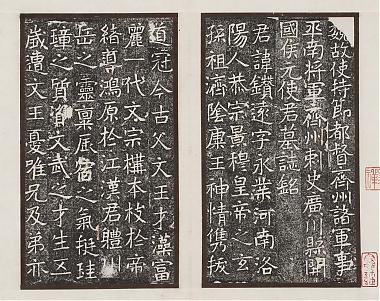 魏故使持節都督齊州諸軍事
平南將軍齊州刺史廣川縣開
國侯元使君墓誌銘
君諱鑽遠字永業河南洛
陽人恭宗景穆皇帝之玄
孫祖濟陰康王神情雋拔
道冠今古父文王才藻富
麗一代文宗構本枝於帝
緒導鴻原於江漢君體川
岳之靈稟辰宿之氣挺珪
璋之質文武之才生五
歲遭文王憂唯兄及弟亦